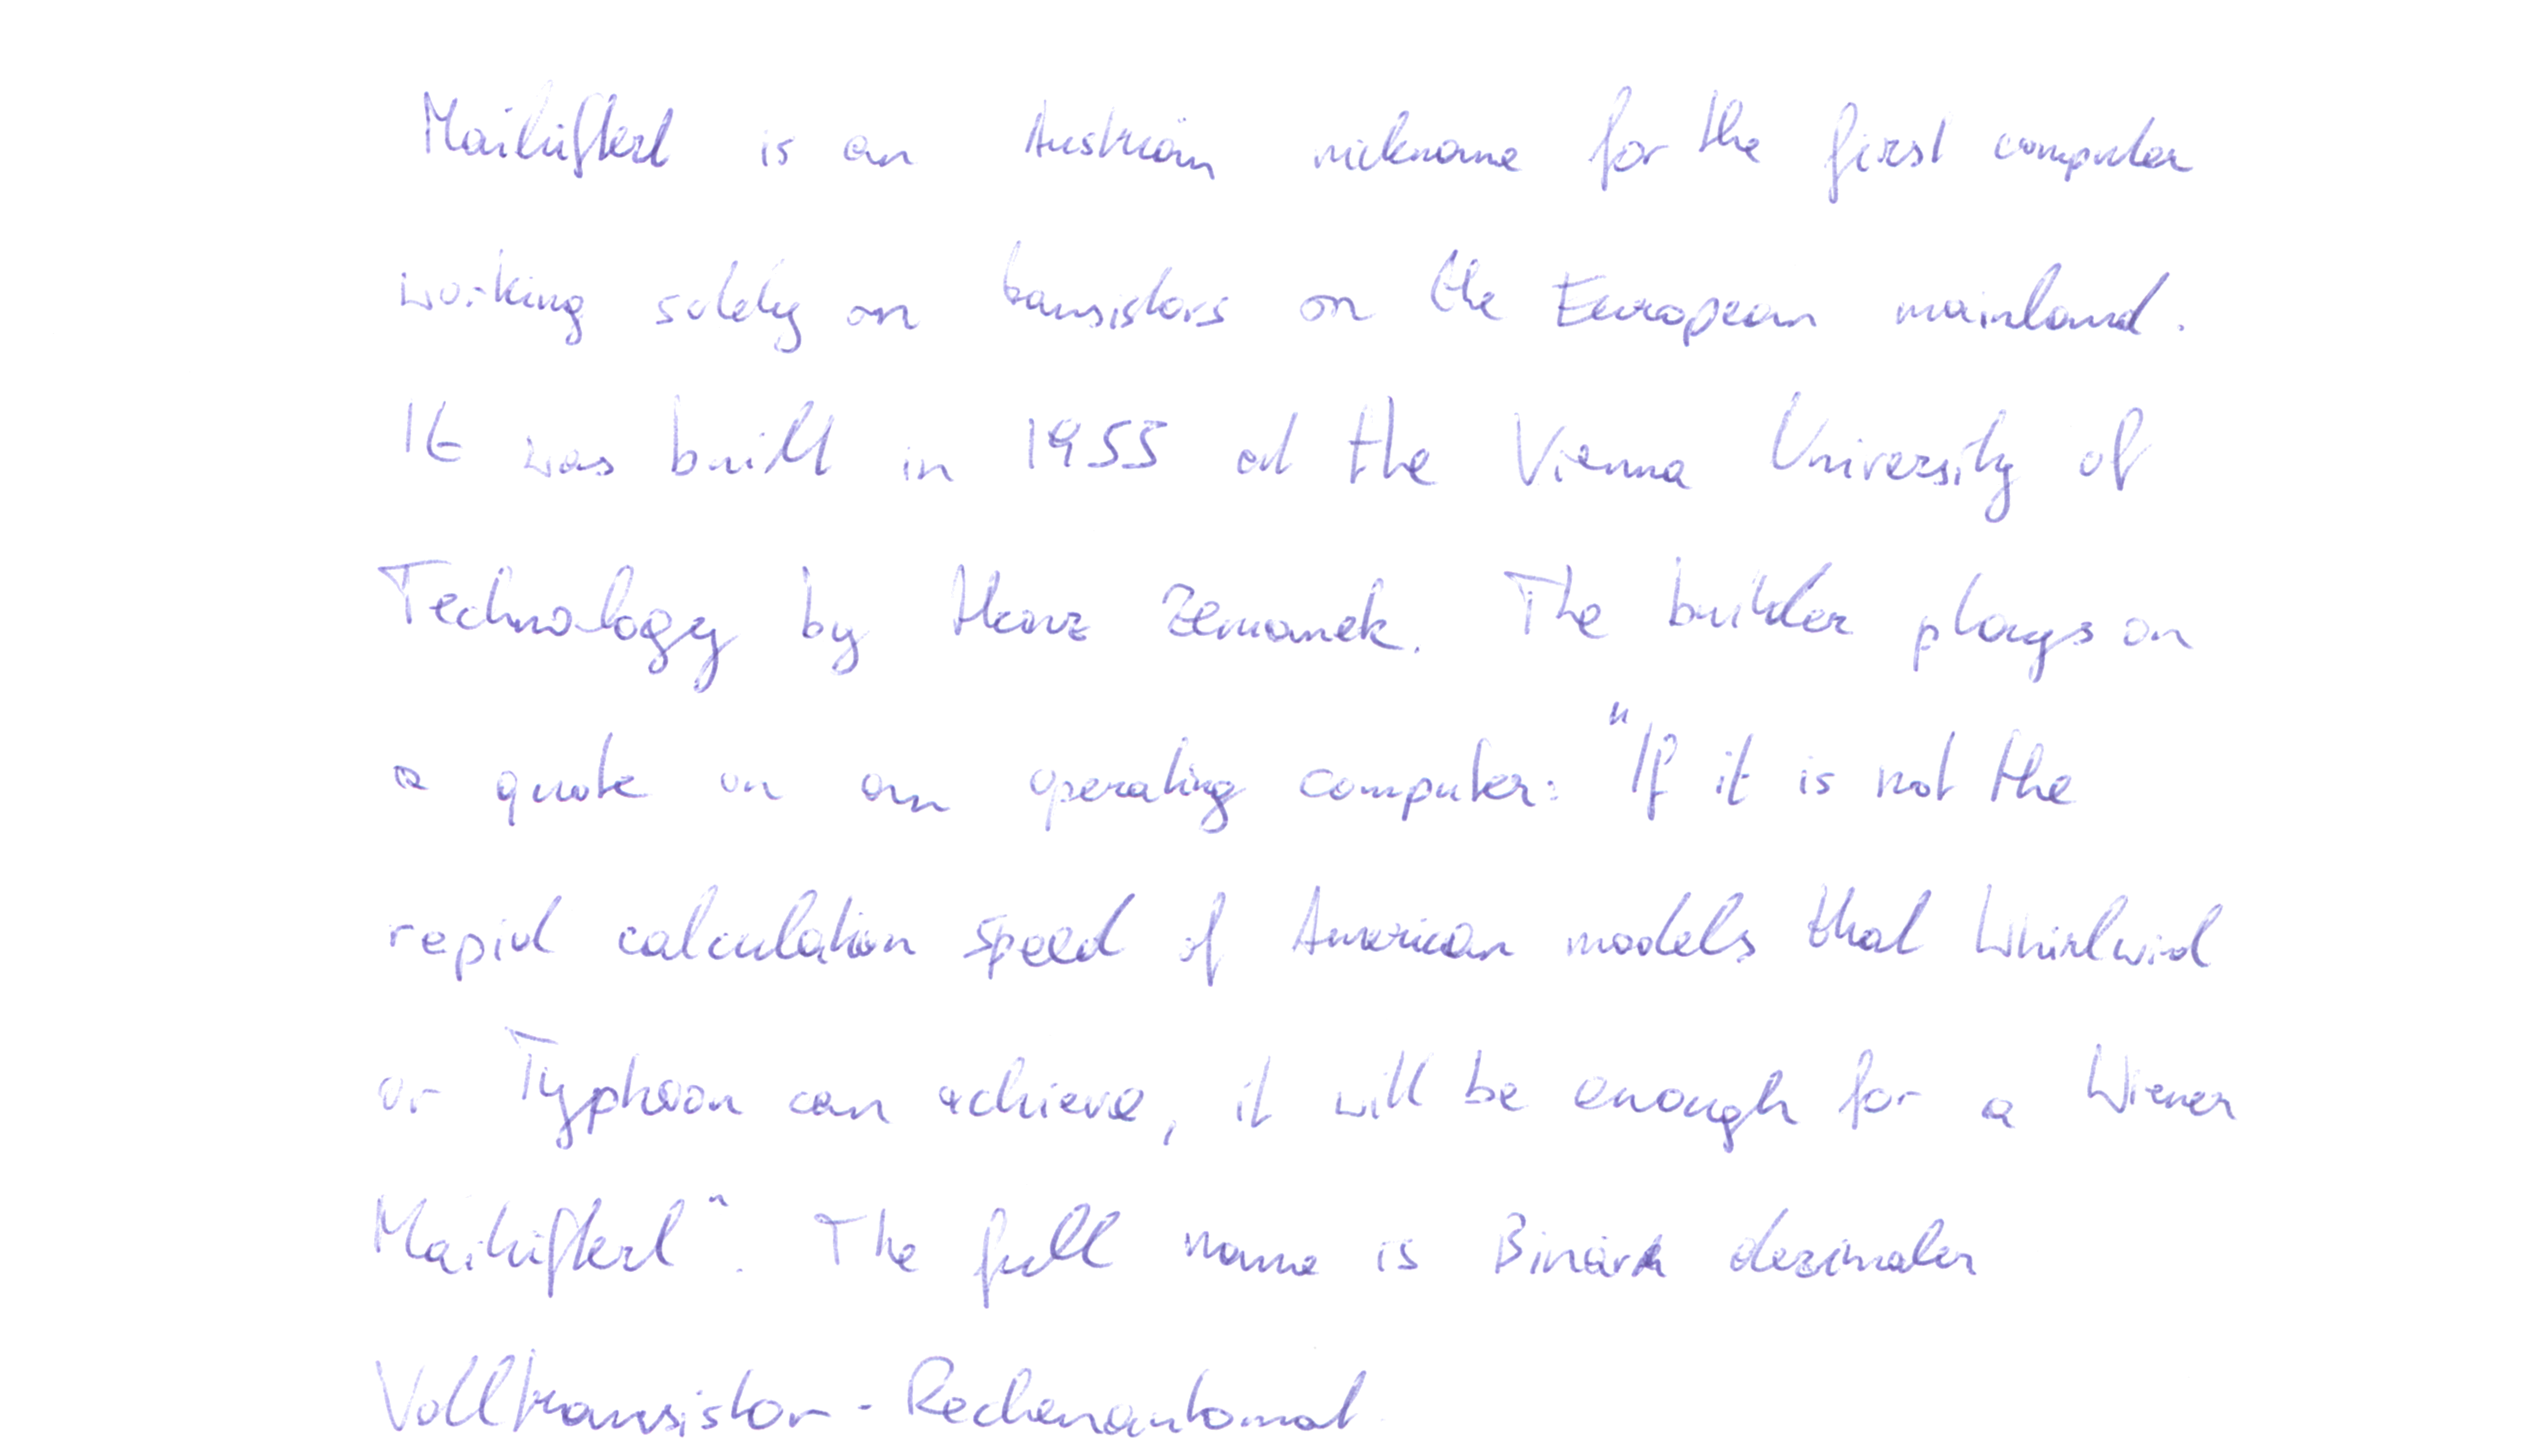 Mailüfterl is an Austrian nickname for the first computer
working solely on transistors on the European mainland.
It was built in 1955 at the Vienna University of
Technology by Heinz Zemanek. The builder plays on
a quote on an operating computer: "If it is not the
rapid calculation speed of American models that Whirlwid
or Typhoon can achieve, it will be enough for a Wiener
Mailüfterl". The full name is Binär dezimaler
Volltransistor - Rechenautomat